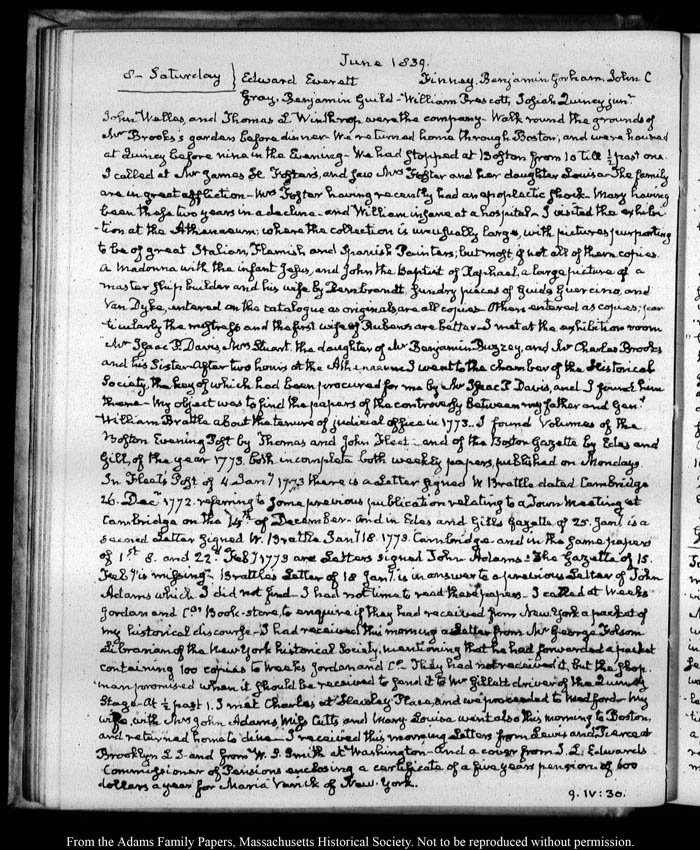 June 1839.
8 - Saturday } Edward Everett Finney, Benjamin Gorham, John C
Gray, Benjamin Guild - William Prescott, Josiah Quincy junr.
John Welles, and Thomas L Winthrop were the company - Walk round the grounds of
Mr Brooks's garden before dinner - We returned home through Boston, and were housed
at Quincy before nine in the Evening - We had stopped at Boston from 10 to ½ past one.
I called at Mr James H. Foster's, and saw Mrs Foster and her daughter Louisa - The family
are in great affliction - Mrs Foster having recently had an apoplectic shock - Mary having
been these two years in a decline - and William insane at a hospital - I visited the exhibi
-tion at the Athenaeum; where the collection is unusually large, with pictures purporting
to be of great Italian, Flemish and Spanish Painters; but most, if not all of them copies.
A Madonna with the infant Jesus, and John the Baptist of Raphael, a large picture of a
master ship builder and his wife by Rembrandt, sundry pieces of Guido Guercino, and
Van Dyke, entered on the catalogue as originals are all copies - Others entered as copies; par
ticularly the mistress and the first wife of Rubens are better - I met at the exhibition room
Mr Isaac P. Davis, Mrs Stuart, the daughter of Mr Benjamin Bussey, and Mr Charles Brooks
and his Sister - After two hours at the Athenaeum I went to the chamber of the Historical
Society, the key of which had been procured for me by Mr Isaac P. Davis, and I found him
there - My object was to find the papers of the controversy between my father and Genl
William Brattle about the tenure of judicial office in 1773. I found Volumes of the
Boston Evening Post by Thomas and John Fleet - and of the Boston Gazette by Edes and
Gill, of the year 1773. both incomplete both weekly papers, published on Mondays.
In Fleets Post of 4 Jany 1773 there is a Letter signed W. Brattle dated Cambridge
26. Decr 1772. referring to some previous publication relating to a Town Meeting at
Cambridge on the 14th of December - And in Edes and Gills Gazette of 25. Jany is a
second Letter signed W. Brattle Jany 18. 1773. Cambridge - and in the same papers
of 1st 8. and 22d Feby 1773 are Letters signed John Adams - The Gazette of 15.
Feby is missing - Brattle's Letter of 18 Jany. is in answer to a previous Letter of John
Adams which I did not find - I had not time to read these papers - I called at Weeks
Jordan and Co's Book-store, to enquire if they had received from New York a packet of
my historical discourse - I had received this morning a Letter from Mr George Folsom
Librarian of the New York historical Society, mentioning that he had forwarded a packet
containing 100 copies to Weeks Jordan and Co. They had not received it, but the shop
man promised when it should be received to send it to Mr Gillett driver of the Quincy
Stage - At ½ past 1. I met Charles at Hawley Place, and we proceeded to Medford - My
wife, with Mrs John Adams, Miss Cutts and Mary Louisa went also this morning to Boston,
and returned home to dine - I received this morning Letters from Lewis and Pierce at
Brooklyn L I - and from W. S. Smith at Washington - and a cover from J. L. Edwards
Commissioner of Pensions enclosing a certificate of a five years pension of 600
dollars a year for Maria Varick of New York.
9. IV: 30.
From the Adams Family Papers, Massachusetts Historical Society. Not to be reproduced without permission.